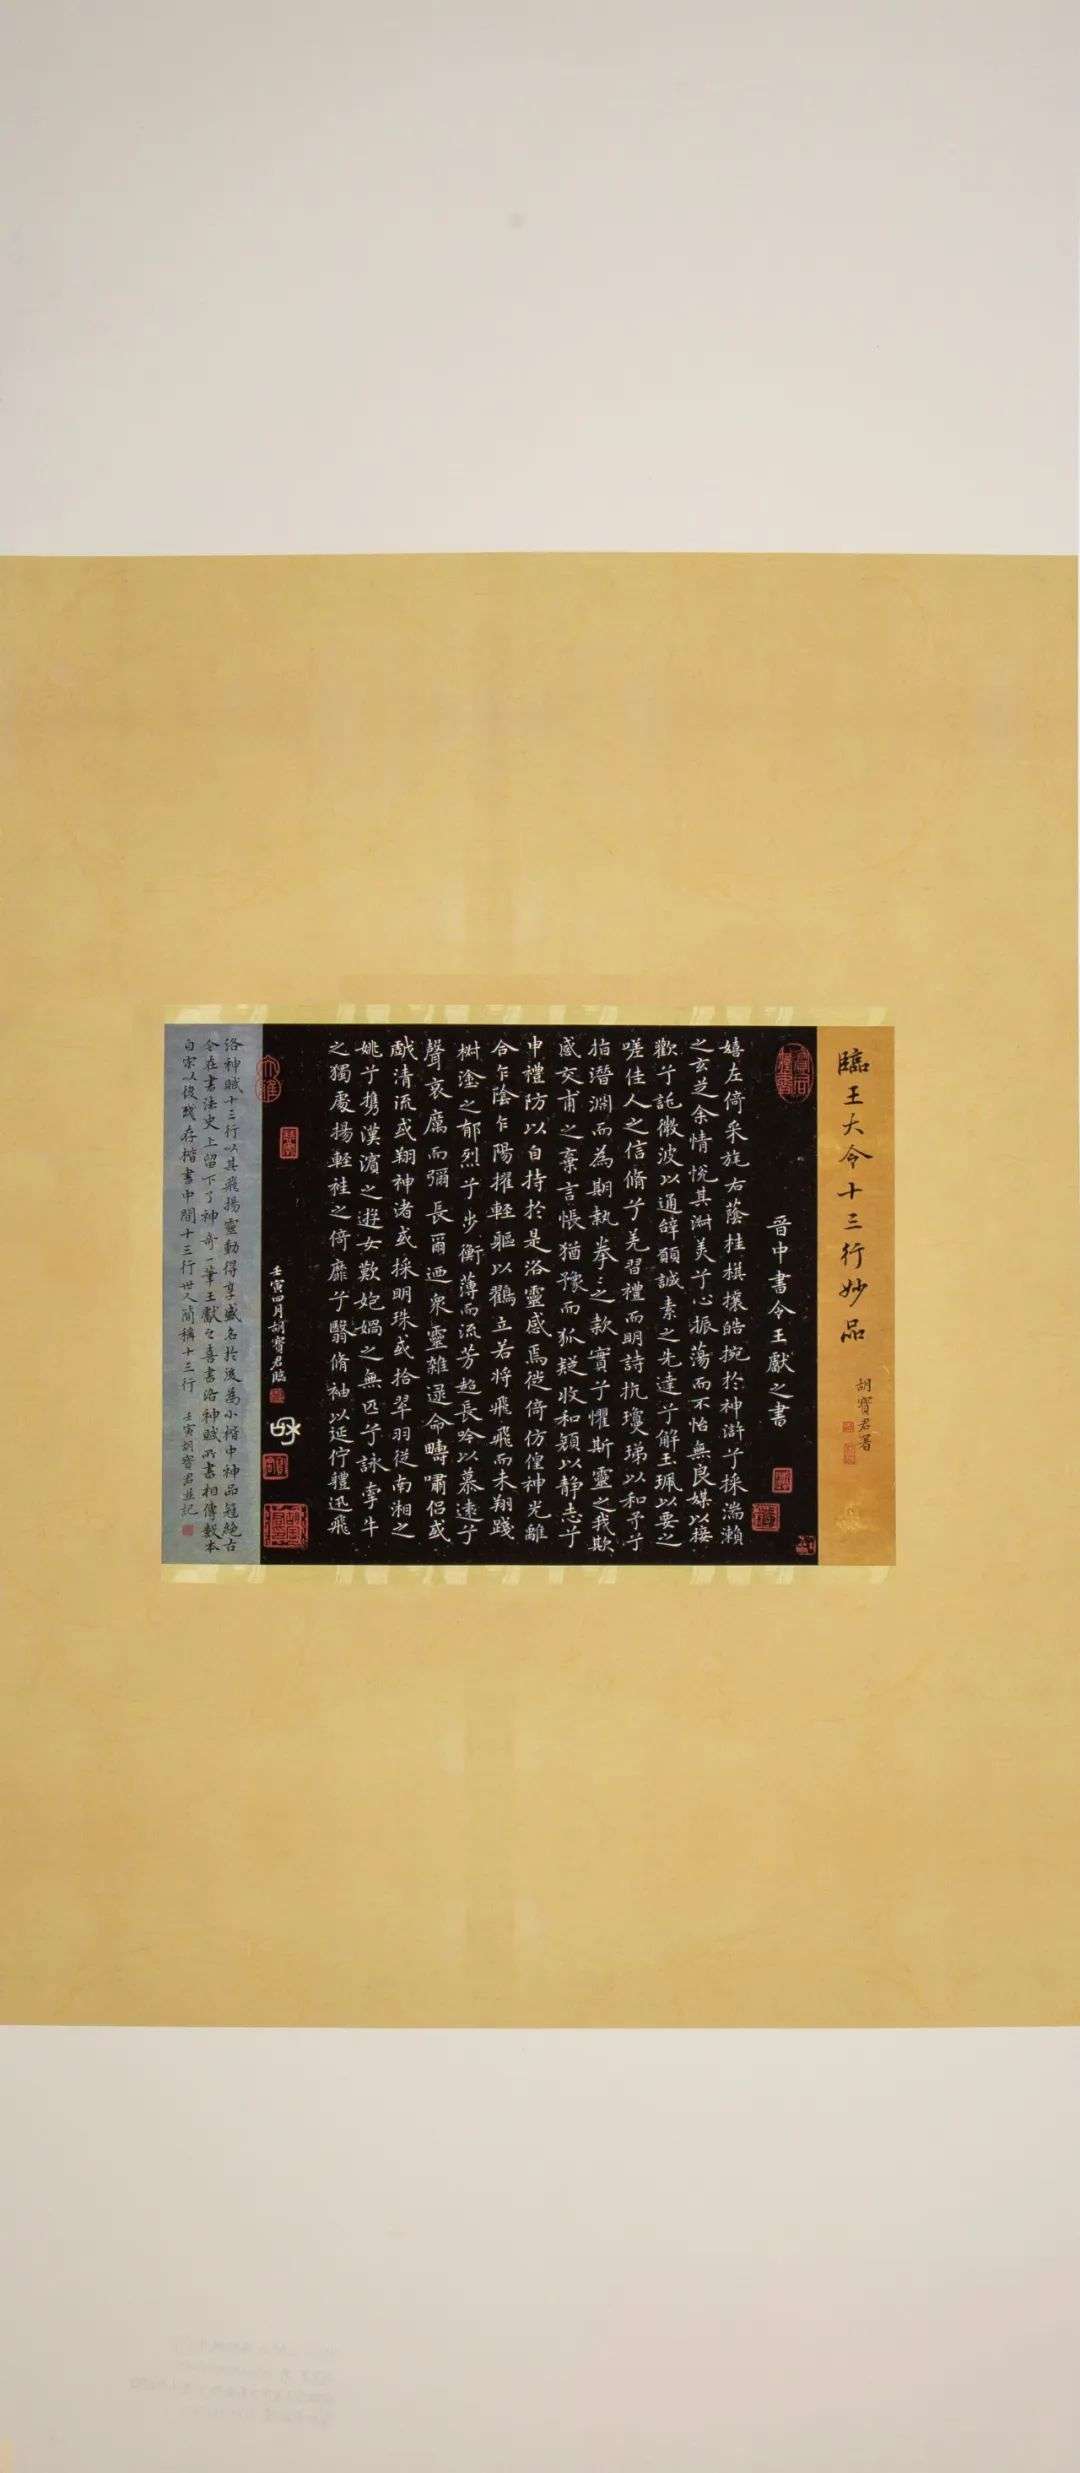 臨王大令十三行妙品
胡寶君署
晋中書令王獻之書
嬉左倚采旄右蔭桂棋攘皓捥於神滸兮採湍瀨
之玄芝余情悅其淑美兮心振蕩而不怡無良媒以接
歡兮託微波以通辭願誠素之先達兮解玉珮以要之
嗟佳人之信脩兮羌習禮而明詩抗瓊珶以和予兮
指潛淵而為期執拳之款實兮懼斯靈之我欺
感交甫之棄言悵猶豫而狐疑收和顏以静志兮
申禮防以自持於是洛靈感焉徙倚仿偟神光離
合乍陰乍陽擢輕軀以鶴立若將飛飛而未翔踐
椒塗之郁烈兮步衡薄而流芳超長吟以慕遠兮
聲哀厲而彌長爾迺衆靈雜遝命疇嘯侶或
戲清流或翔神渚或採明珠或拾翠羽從南湘之
姚兮携漢濱之遊女歎妑媧之無匹兮詠牽牛
之獨處揚輕袿之倚靡兮翳脩袖以延佇軆迅飛
壬寅四月胡寶君臨
洛神賦十三行以其飛揚靈動得享盛名於後為小楷中神品冠絶古
今在書法史上留下了神奇一筆王獻之喜書洛神賦所書相傳數本
自宋以後殘存楷書中間十三行世人簡稱十三行 壬寅胡寶君並記